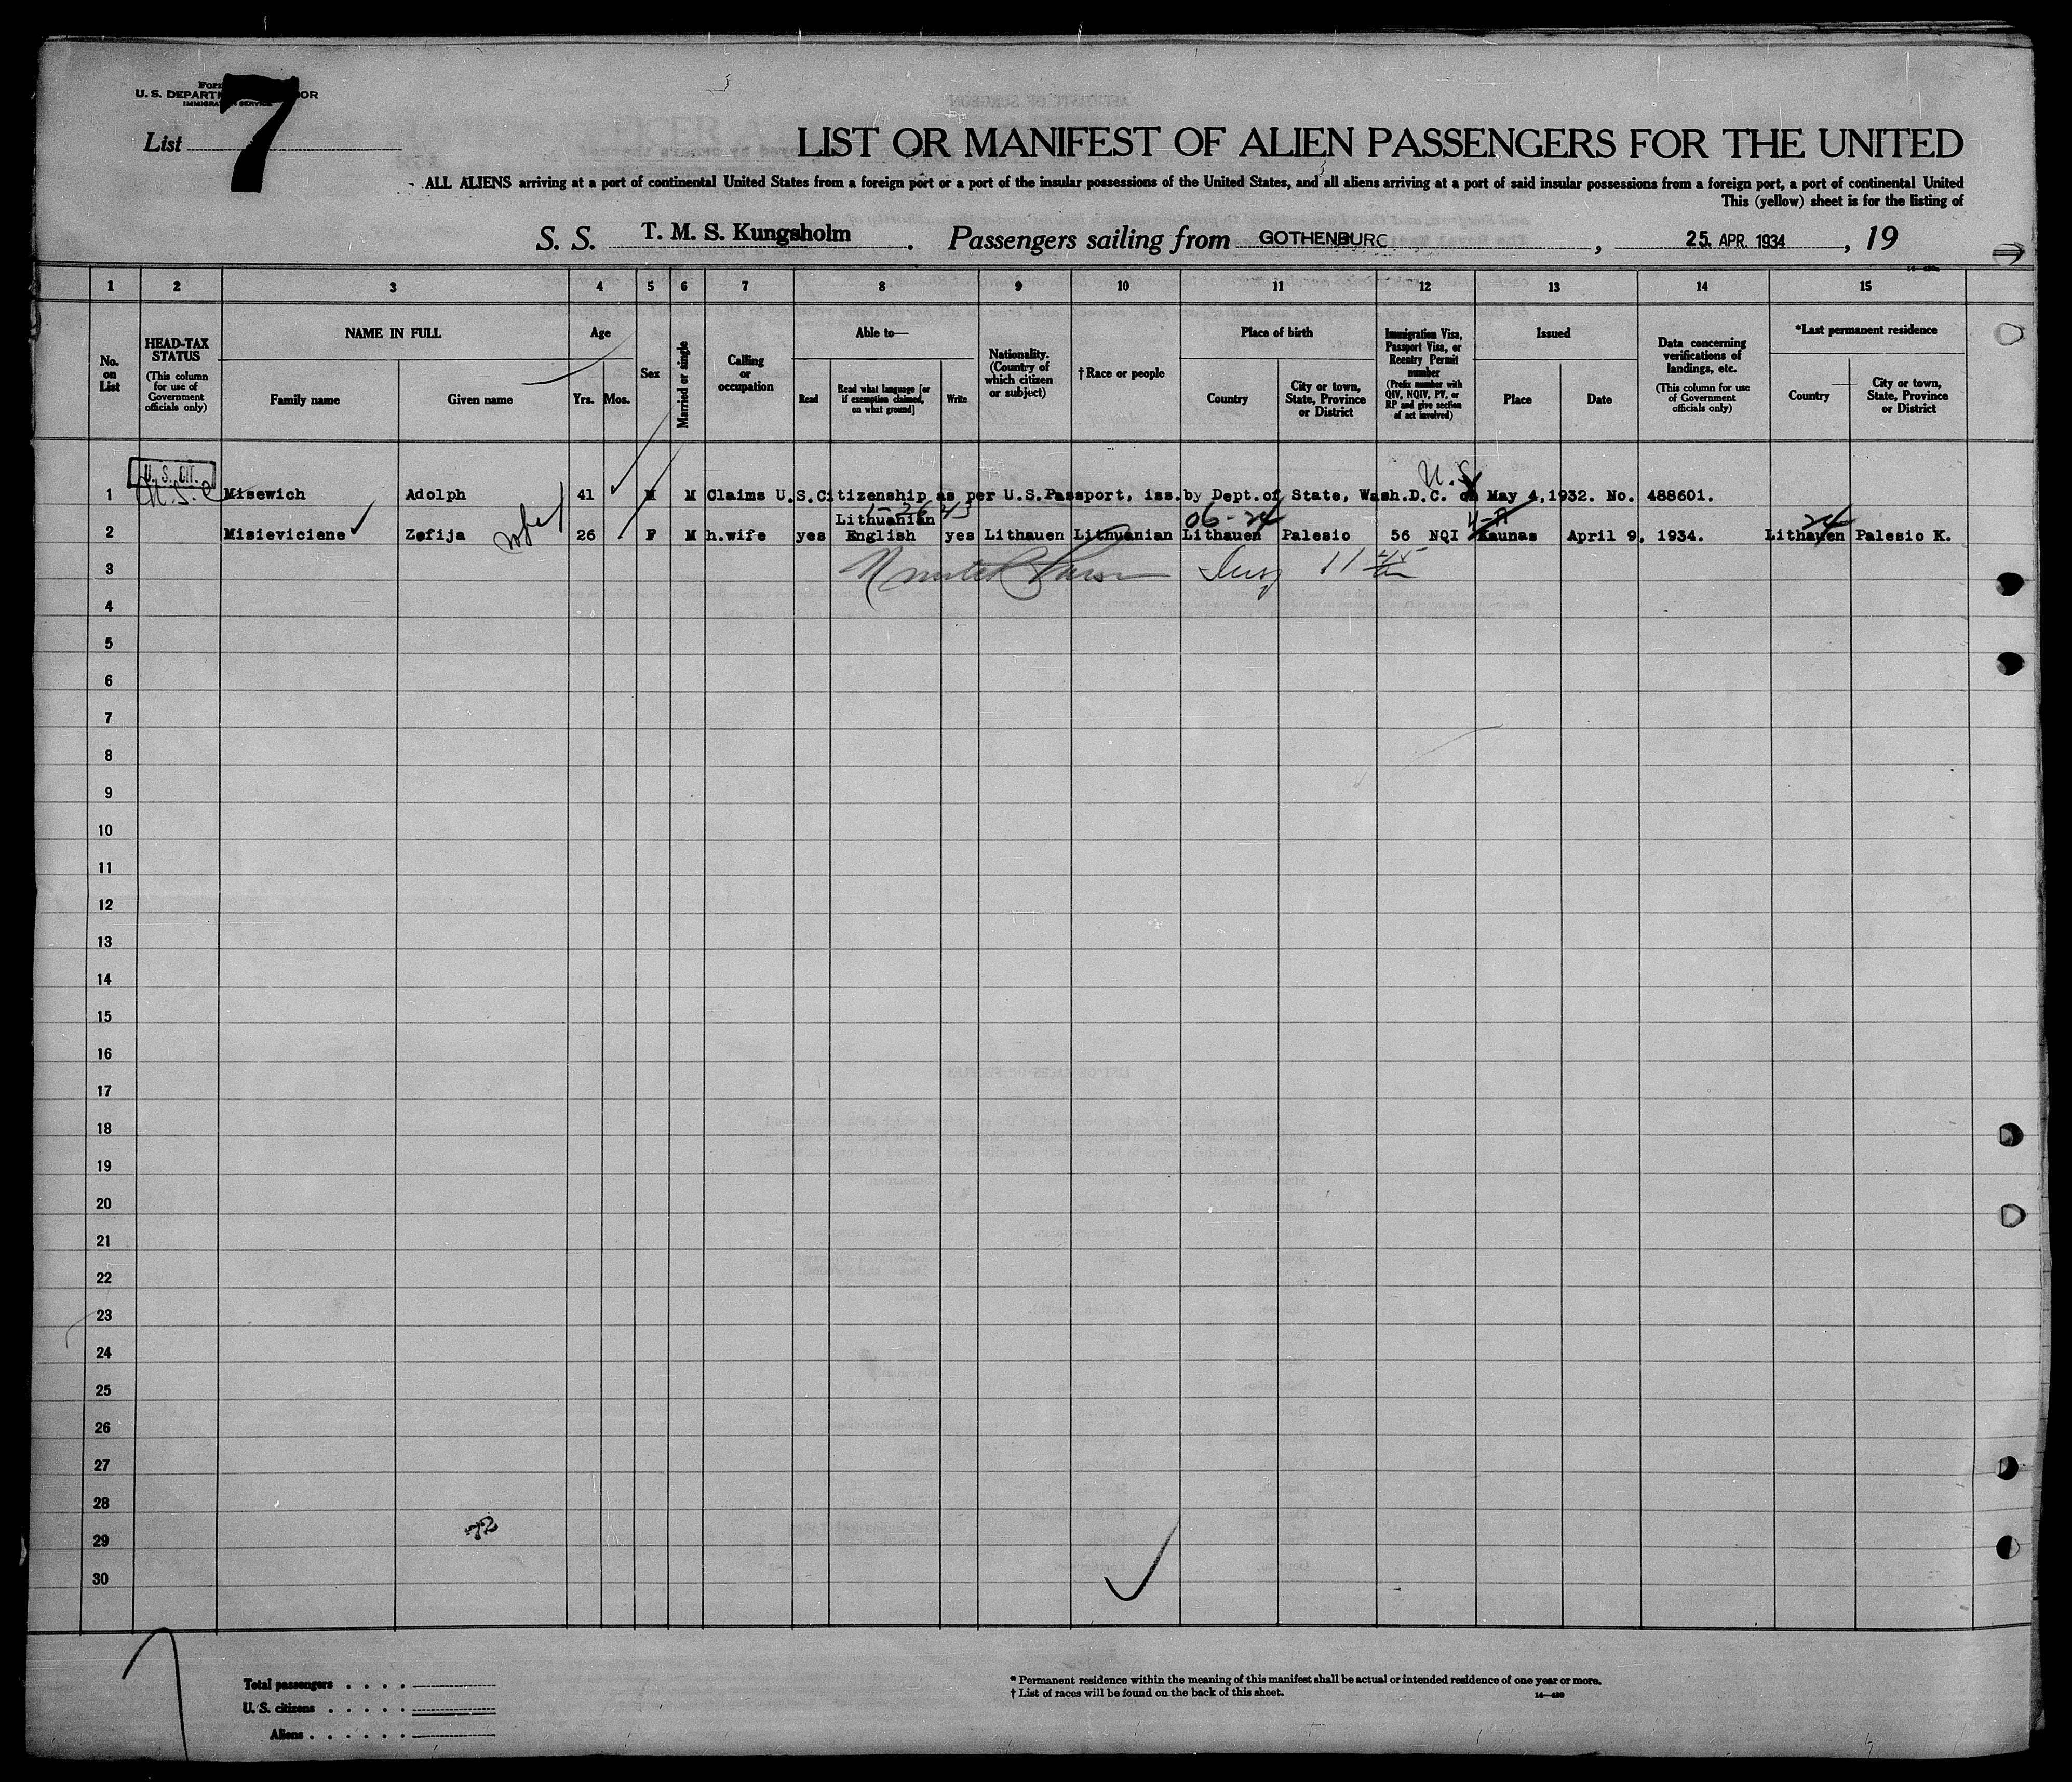 Form
U. S. DEPARTM OR
IMMIGRATION SERVICE
List 7
LIST OR MANIFEST OF ALIEN PASSENGERS FOR THE UNITED
ALL ALIENS arriving at a port of continental United States from a foreign port or a port of the insular possessions of the United States, and all aliens arriving at a port of said insular possessions from a foreign port, a port of continental United
This (yellow) sheet is for the listing of
S. S. T. M. S. Kungsholm. Passengers sailing from GOTHENBURG, 25. APR. 1934, 19
1 2 3 4 5 6 7 8 9 10 11 12 13 14 15
No. on List
HEAD-TAX STATUS
(This column for use of Government officials only)
NAME IN FULL
Family name
Given name
Age
Yrs. Mos.
Sex
Married or single
Calling or occupation
Able to—
Read
Read what language [or if exemption claimed, on what ground]
Write
Nationality. (Country of which citizen or subject)
†Race or people
Place of birth
Country
City or town, State, Province or District
Immigration Visa, Passport Visa, or Reentry Permit number
(Prefix number with QIV, NQIV, PV, or RP and give section of act involved)
Issued
Place
Date
Data concerning verifications of landings, etc.
(This column for use of Government officials only)
*Last permanent residence
Country
City or town, State, Province or District
U. S. CIT.
U.S.C
U.S
1 Misewich Adolph 41 M M Claims U.S.Citizenship as per U.S.Passport, iss.by Dept.of State, Wash.D.C. on May 4,1932. No. 488601.
Lithuanian 06-24 24
2 Misieviciene Zofija 26 F M h.wife yes English yes Lithauen Lithuanian Lithauen Palesio 56 NQI Kaunas April 9, 1934. Lithauen Palesio K.
3
4
5
6
7
8
9
10
11
12
13
14
15
16
17
18
19
20
21
22
23
24
25
26
27
28
72
29
30
Total passengers
U. S. citizens
Aliens
* Permanent residence within the meaning of this manifest shall be actual or intended residence of one year or more.
† List of races will be found on the back of this sheet. 14—480